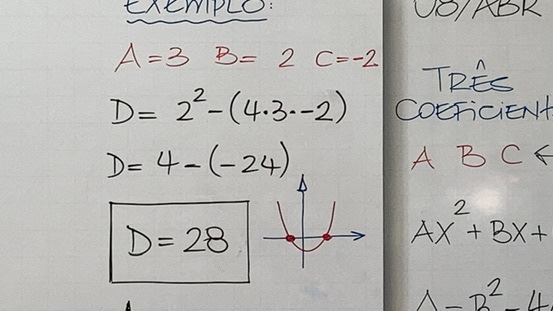 EXEMPLO:
A=3 B= 2 C=-2
D= 2²-(4·3·-2)
D= 4-(-24)
D=28
08/ABR
TRÊS
COEFICIENT
A B C ←
AX²+BX+